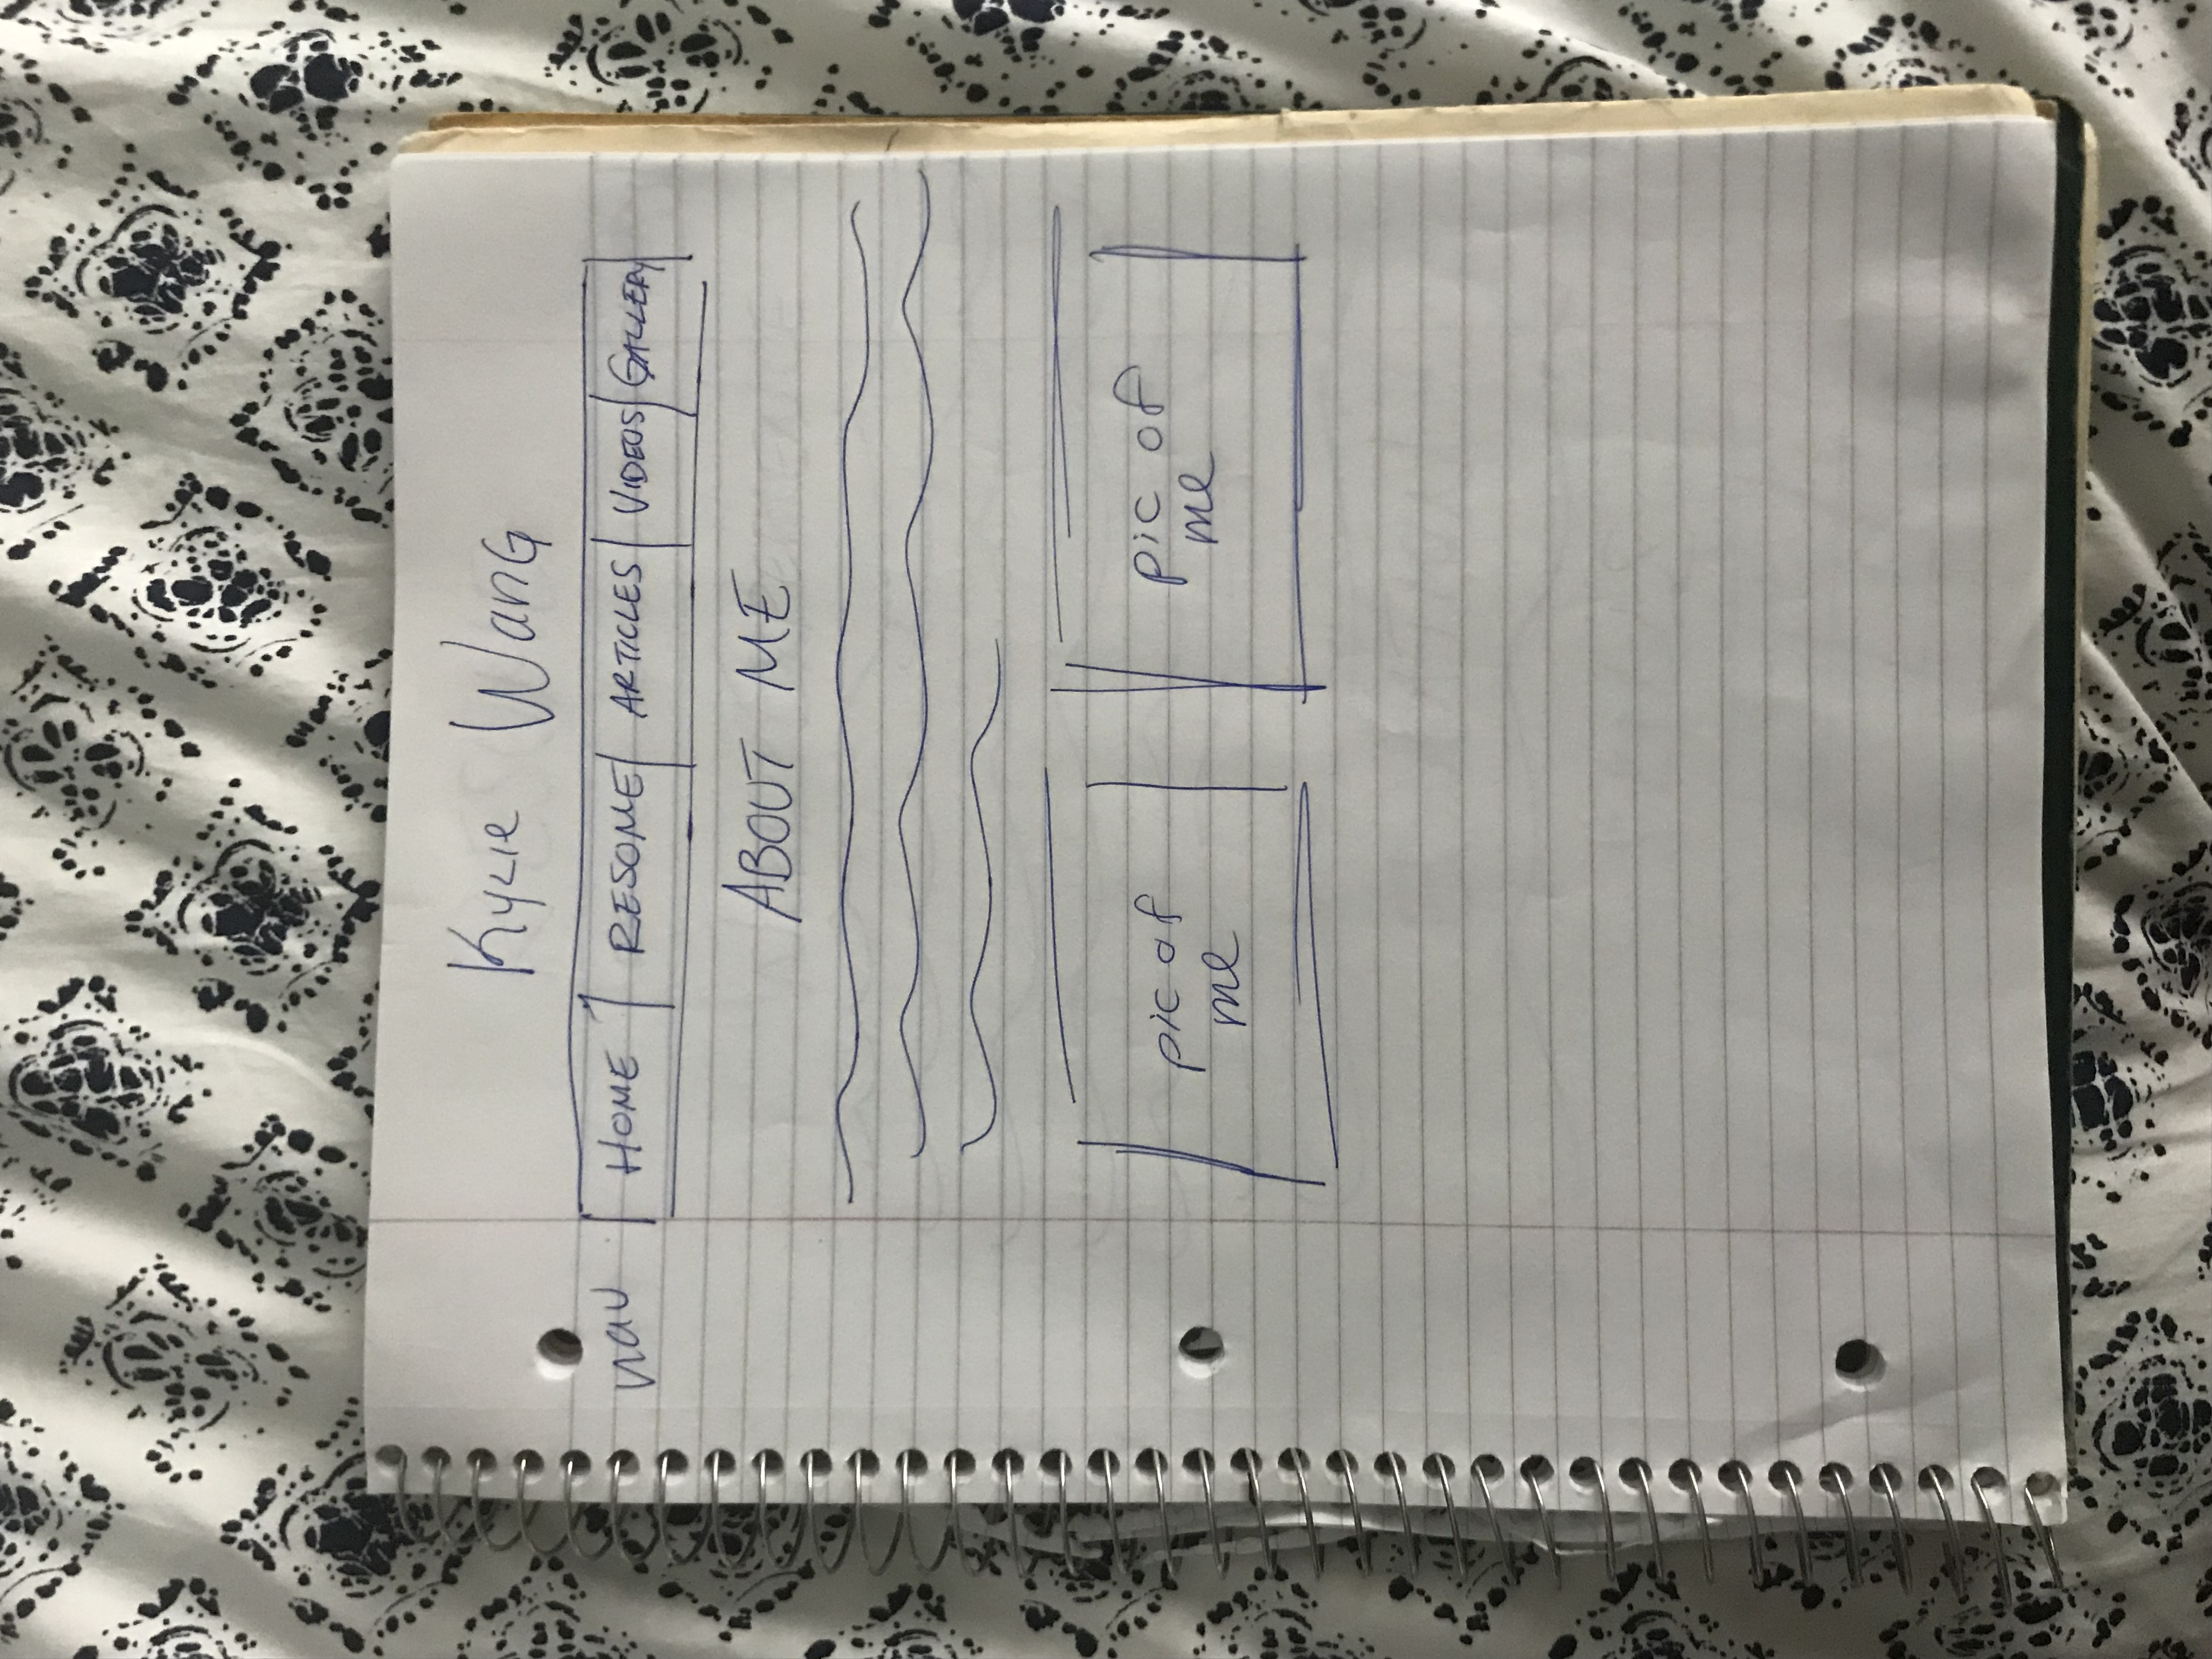 Kylie Wang
nav HOME RESOME ARTICLES VIDEOS GALLERY
ABOUT ME
pic of pic of
me me